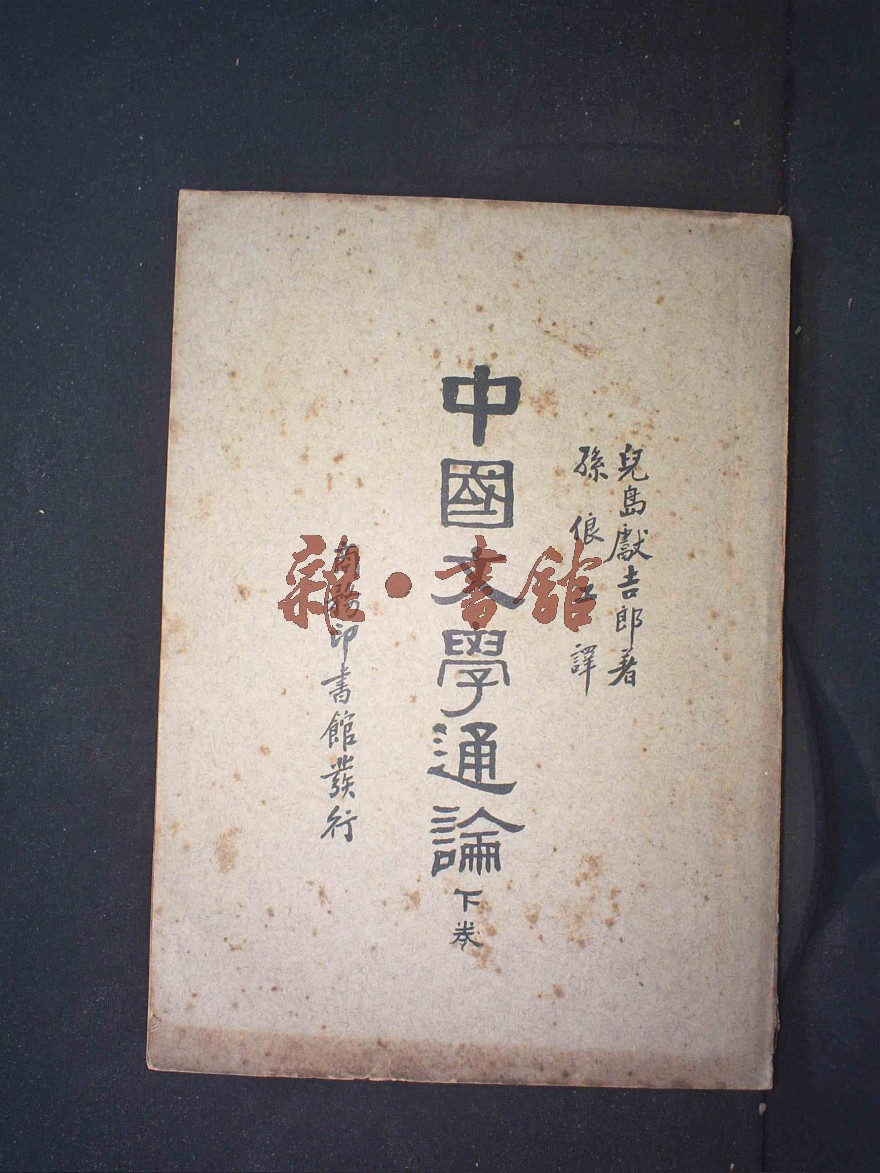 兒島獻吉郎著
孫俍工譯
中國文學通論下卷
商務印書館發行
雜·書館